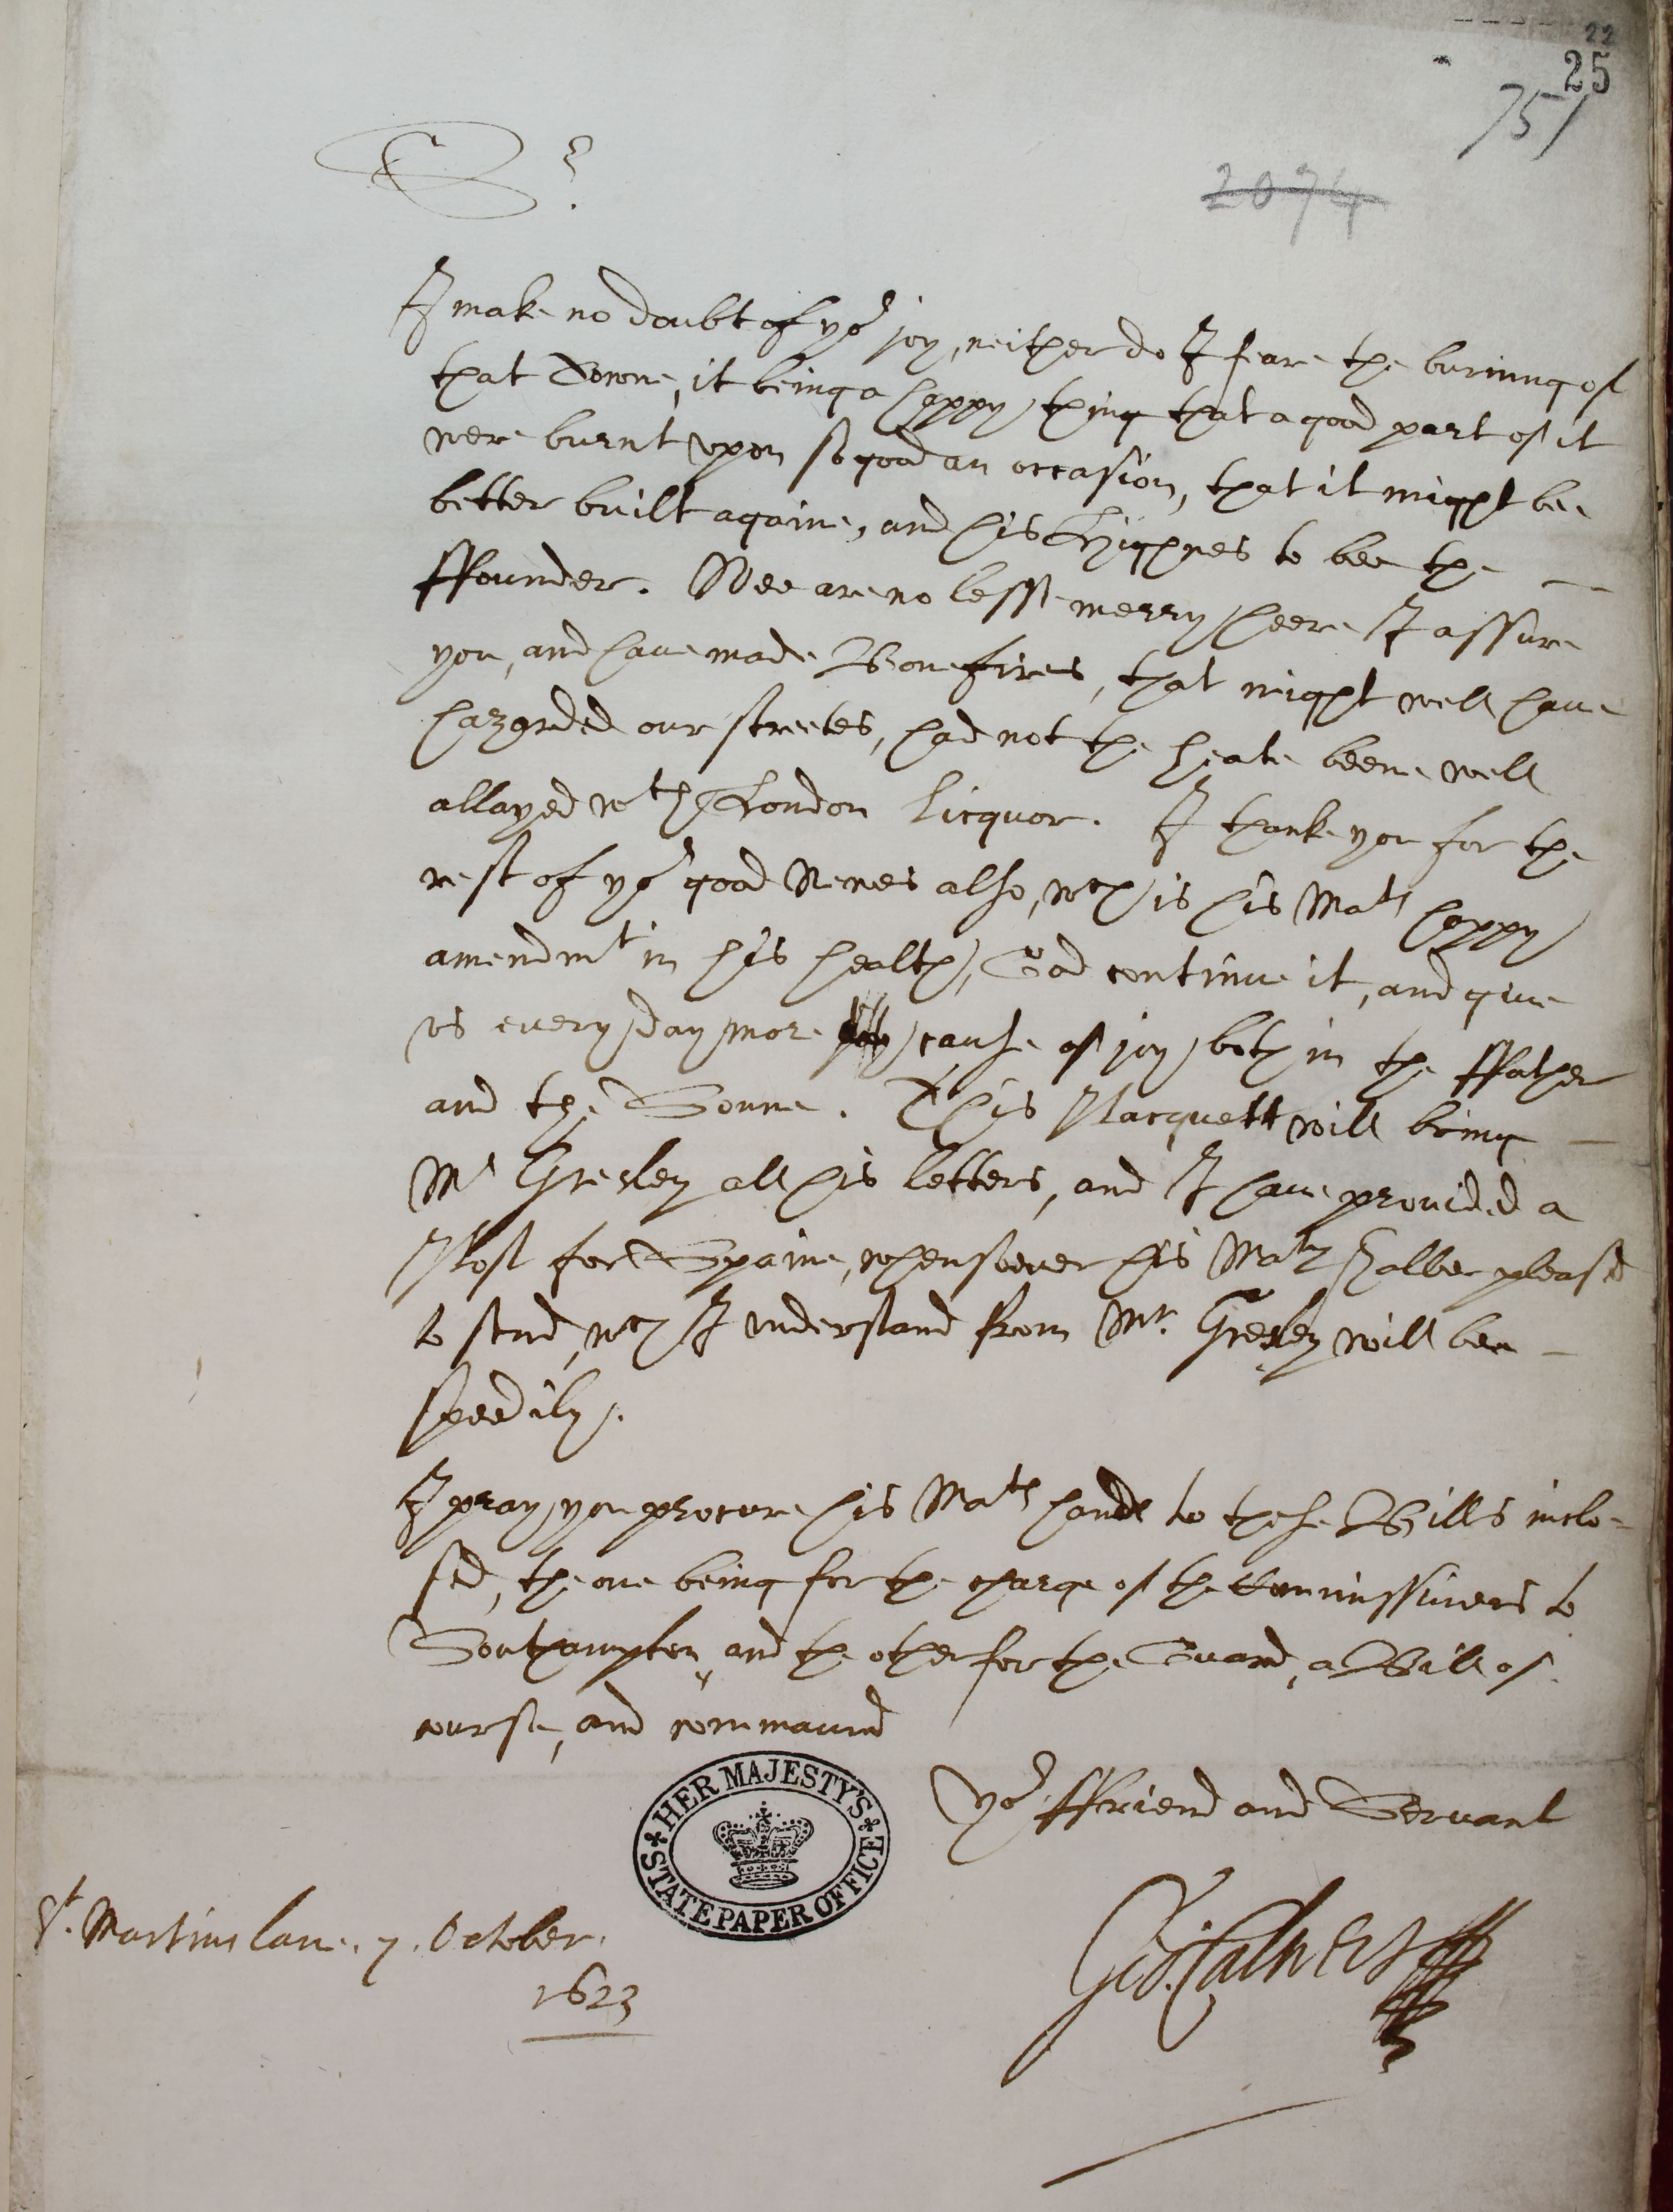 22
25
751
2074
Sr.
I make no doubt of yor joy, neither do I feare the burning of
that Towne, it being a happy thing that a good part of it
were burnt upon so good an occasion, that it might be
better built againe, and his Highnes to bee the
ffounder. Wee are no lesse merry heere I assure
you, and have made Bonefires, that might well have
hazarded our streetes, had not the heate beene well
allayed wth London Licquor. I thanke you for the
rest of yor good Newes also, wch is his Mats happy
amendmt in his health, God continue it, and give
us every day more cause of joy both in the ffather
and the Sonne. This Pacquett will bring
Mr Gresley all his letters, and I have provided a
Post for Spaine, whensoever his Maty shalbe pleased
to send, wch I understand from Mr. Gresley will bee
speedily.
I pray you procure his Mats hand to these Bills inclo-
sed, the one being for the charge of the Commissioners to
Southampton, and the other for the Guard, a Bill of
course, and command
yor ffriend and Servant
Geo: Calvert
St. Martins lane. 7. October.
1623
HER MAJESTY'S
STATE PAPER OFFICE